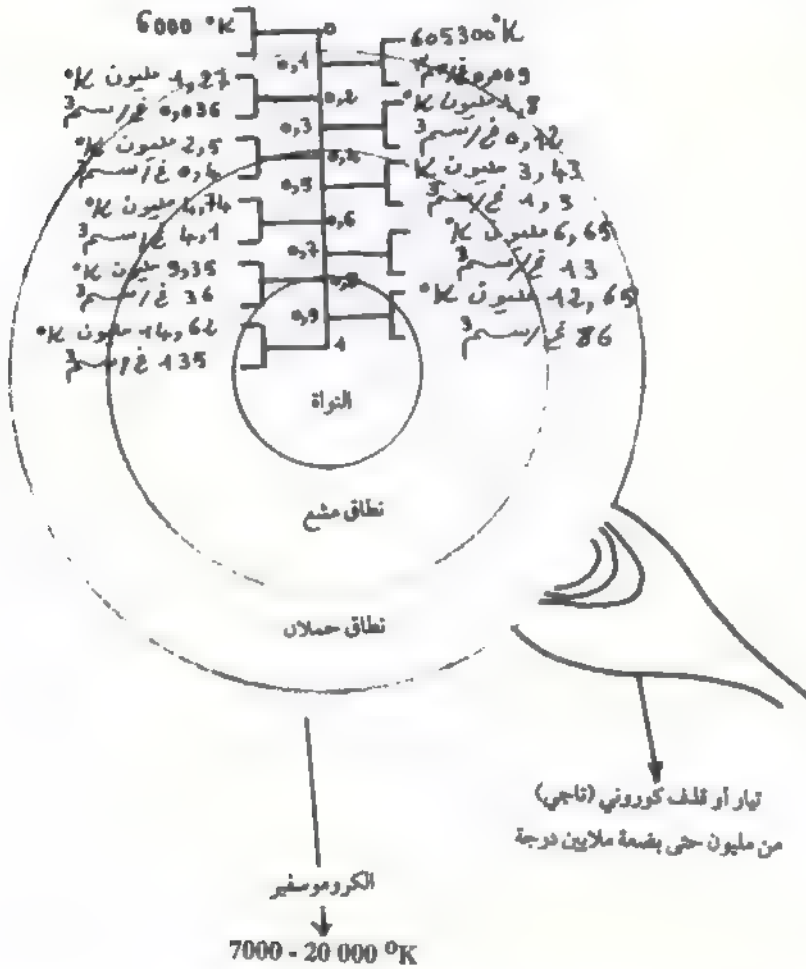 6000 °K
0
605300°K
0,1
0,009 غ/سم³
1,27 مليون K°
0,036 غ/سم³
0,2
1,8 مليون K°
0,12 غ/سم³
0,3
2,5 مليون K°
0,4 غ/سم³
0,4
3,43 مليون K
1,3 غ/سم³
0,5
4,74 مليون K°
4,1 غ/سم³
0,6
6,65 مليون K°
13 غ/سم³
0,7
9,35 مليون K°
36 غ/سم³
0,8
12,65 مليون K°
86 غ/سم³
0,9
14,62 مليون K°
135 غ/سم³
1
النواة
نطاق مشع
نطاق حملان
تيار أو قذف كوروني (تاجي)
من مليون حتى بضعة ملايين درجة
الكروموسفير
7000 - 20 000 °K